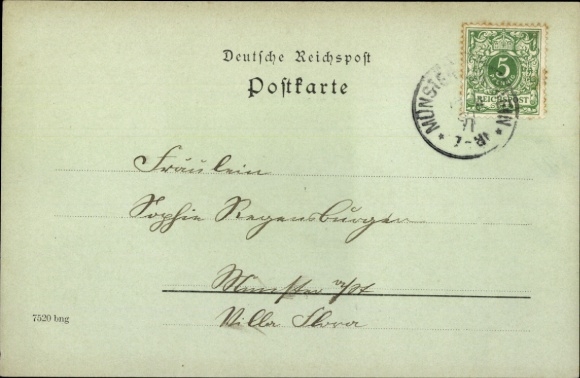 Deutsche Reichspost
Postkarte
5
REICHSPOST
* MÜNSTER
Fräulein
Sophie Regensburger
Münster a/St
Villa Flora
7520 bng